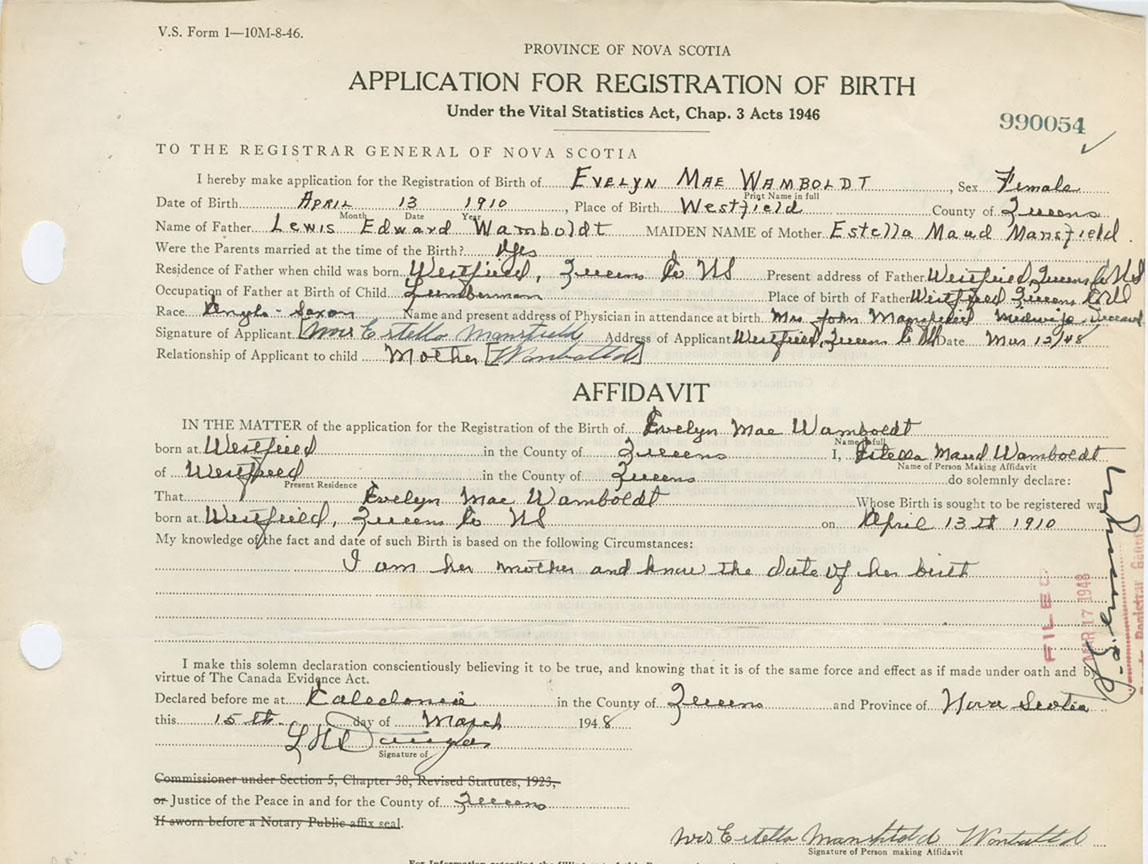 V.S. Form 1—10M-8-46.
PROVINCE OF NOVA SCOTIA
APPLICATION FOR REGISTRATION OF BIRTH
Under the Vital Statistics Act, Chap. 3 Acts 1946
990054
TO THE REGISTRAR GENERAL OF NOVA SCOTIA
I hereby make application for the Registration of Birth of EVELYN MAE WAMBOLDT, Sex Female
Print Name in full
Date of Birth APRIL 13 1910, Place of Birth Westfield County of Queens
Month Date Year
Name of Father Lewis Edward Wamboldt MAIDEN NAME of Mother Estella Maud Mansfield
Were the Parents married at the time of the Birth? Yes
Residence of Father when child was born Westfield, Queens Co NS Present address of Father Westfield, Queens Co NS
Occupation of Father at Birth of Child Lumberman Place of birth of Father Westfield Queens Co NS
Race Anglo-Saxon Name and present address of Physician in attendance at birth Mrs John Mansfield Midwife
Signature of Applicant [Mrs Estella Mansfield Address of Applicant Westfield, Queens Co NS Date Mar 15/48
Relationship of Applicant to child Mother [Wamboldt]
AFFIDAVIT
IN THE MATTER of the application for the Registration of the Birth of Evelyn Mae Wamboldt
Name in full
born at Westfield in the County of Queens I, Estella Maud Wamboldt
Name of Person Making Affidavit
of Westfield in the County of Queens do solemnly declare:
Present Residence
That Evelyn Mae Wamboldt Whose Birth is sought to be registered was
born at Westfield, Queens Co NS on April 13th 1910
My knowledge of the fact and date of such Birth is based on the following Circumstances:
I am her mother and know the date of her birth
FILED
MAR 17 1948
Registrar General
I make this solemn declaration conscientiously believing it to be true, and knowing that it is of the same force and effect as if made under oath and by
virtue of The Canada Evidence Act.
Declared before me at Caledonia in the County of Queens and Province of Nova Scotia
this 15th day of March 1948
Signature of
Commissioner under Section 5, Chapter 38, Revised Statutes, 1923,
or Justice of the Peace in and for the County of Queens
If sworn before a Notary Public affix seal.
Mrs Estella Mansfield Wamboldt
Signature of Person making Affidavit